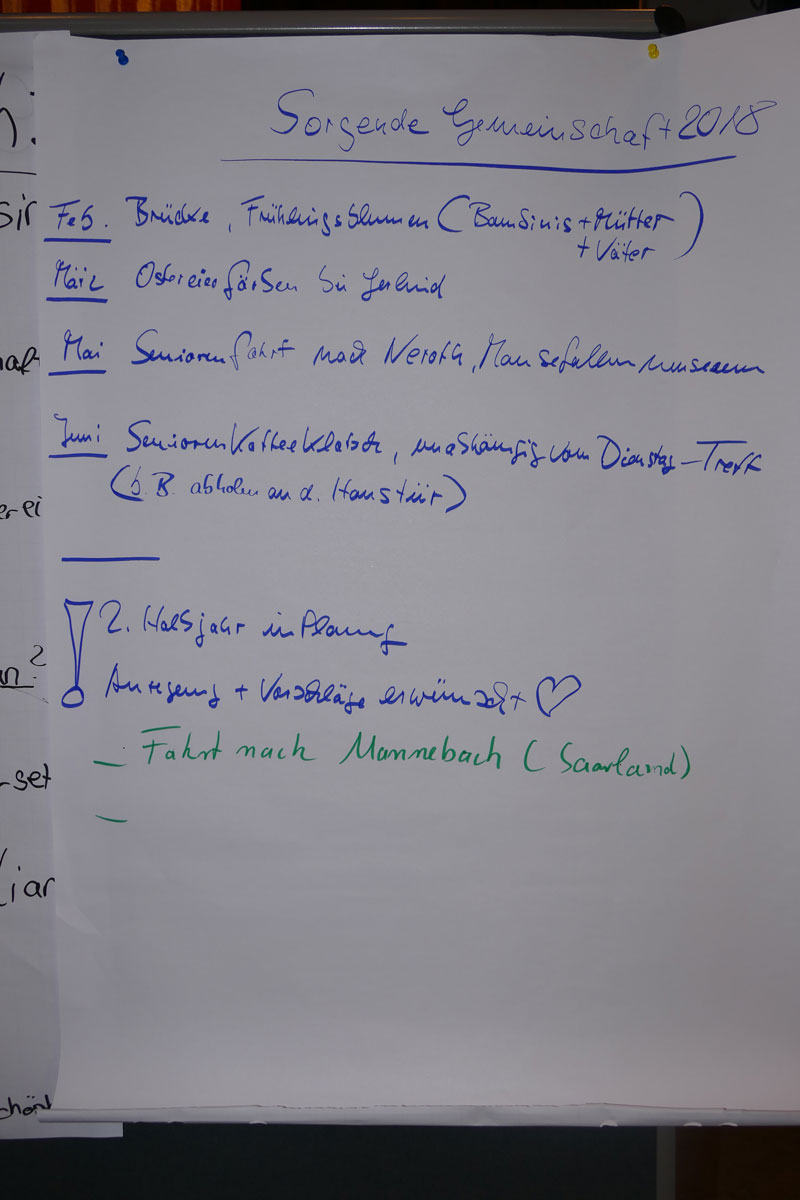 Sorgende Gemeinschaft 2018
Feb. Brücke, Frühlingsblumen (Bambinis + Mütter
+ Väter)
März Ostereier färben bei Gerlind
Mai Seniorenfahrt nach Neroth, Mausefallenmuseum
Juni Seniorenkaffeeklatsch, unabhängig vom Dienstag-Treff
(z.B. abholen an d. Haustür)
2. Halbjahr in Planung
Anregung + Vorschläge erwünscht ♡
– Fahrt nach Mannebach (Saarland)
–
sir
haft
erei
an?
-set
iar
chönt